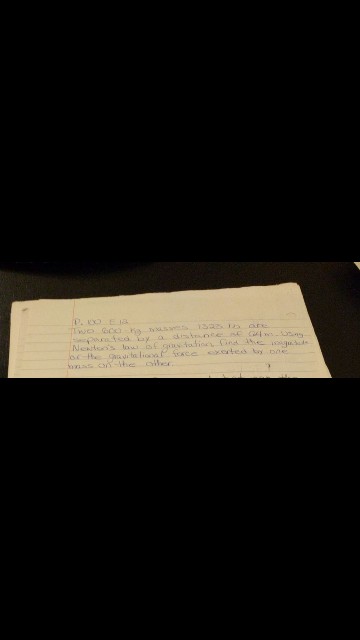 P. 100 E12
Two 600 kg masses (1320 lb) are
separated by a distance of m. Using
Newton's law of gravitation, find the magnitude
of the gravitational force exerted by one
mass on the other.